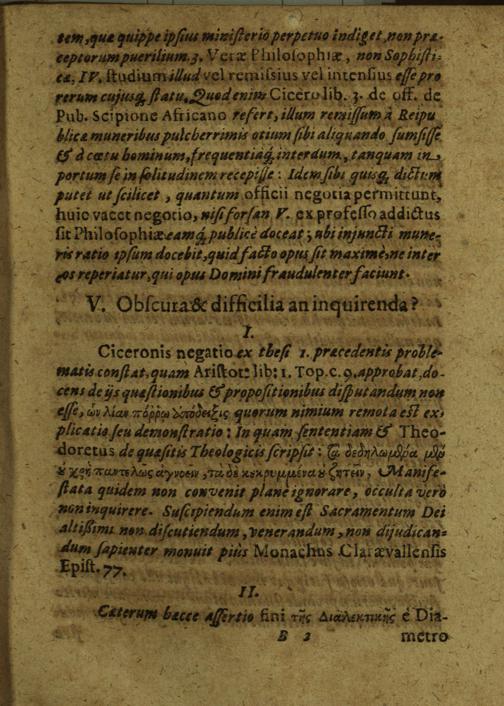 tem, quæ quippe ipsius ministerio perpetuo indiget, non præ-
ceptorum puerilium. 3. Veræ Philosophiæ, non Sophisti-
cæ, IV. studium illud vel remissius vel intensius esse pro
rerum cujusq; statu. Quod enim Cicero lib. 3. de off. de
Pub. Scipione Africano refert, illum remissum à Reipu
blicæ muneribus pulcherrimis otium sibi aliquando sumsisse
& à cœtu hominum, frequentiaq; interdum, tanquam in
portum se in solitudinem recepisse: Idem sibi quisq; dictum
putet ut scilicet, quantum officii negotia permittunt,
huic vacet negotio, nisi forsan V. ex professo addictus
sit Philosophiæ eamq; publicè doceat; ubi injuncti mune-
ris ratio ipsum docebit, quid facto opus sit maximè, ne inter
eos reperiatur, qui opus Domini fraudulenter faciunt.
V. Obscura & difficilia an inquirenda?
I.
Ciceronis negatio ex thesi 1. præcedentis proble-
matis constat, quam Aristot: lib: 1. Top. c. 9. approbat, do-
cens de ijs quæstionibus & propositionibus disputandum non
esse, ὧν λίαν πόῤῥω ἀπόδειξις quorum nimium remota est ex-
plicatio seu demonstratio: In quam sententiam & Theo-
doretus de quæsitis Theologicis scripsit: τὰ δεδηλωμένα μὲν
οὐ χρὴ παντελῶς ἀγνοεῖν, τὰ δὲ κεκρυμμένα οὐ ζητεῖν, Manife-
stata quidem non convenit plane ignorare, occulta verò
non inquirere. Suscipiendum enim est Sacramentum Dei
altissimi non discutiendum, venerandum, non dijudican-
dum sapienter monuit piùs Monachus Clarævallensis
Epist. 77.
II.
Cæterum hæcce assertio fini τῆς Διαλεκτικῆς è Dia-
B 2 metro